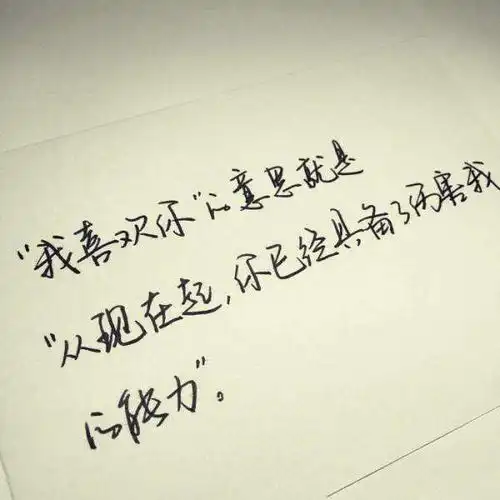 “我喜欢你”的意思就是
“从现在起，你已经具备了伤害我
的能力”。